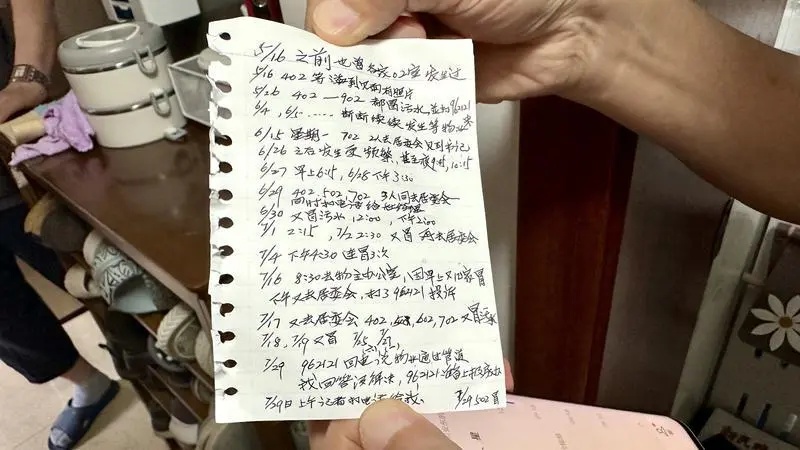 5/16 之前也曾各家02室发生过
5/16 402 等 漫到 有照片
5/26 402 — 902 都冒污水,并打962121
6/4, 6/5 …… 断断续续发生等物业来
6/15 星期一 702 2人去居委会见到书记
6/26 之后发生更频繁,甚至 10:15
6/27 早上6:15, 6/28 下午3:30
6/29 402.502,702 3人同去居委会
同时打电话给
6/30 又冒污水 12:00, 下午2:00
7/1 2:15, 7/2 2:30 又冒 再去居委会
7/4 下午4:30 连冒3次
7/16 8:30去物业办公室,因早上又 冒
下午又去居委会,打3 962121 投诉
7/17 又去居委会 402, 602,702 又冒污水
7/18, 7/19 又冒 7/25, 7/27,
7/29 962121 回电 说物业通过管道
我回答没解决, 962121 上报
7/29日上午记者打电话给我. 7/29 502 冒